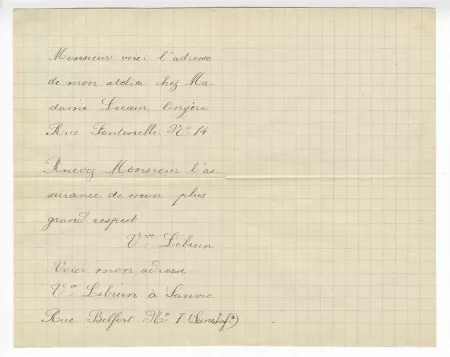 Monsieur voici l'adresse
de mon atelier chez Ma-
dame Lucun lingère
Rue Fontenelle N° 14
Recevez Monsieur l'as-
surance de mon plus
grand respect
Vve Lebrun
Voici mon adresse
Vve Lebrun à Sanvic
Rue Belfort N° 7